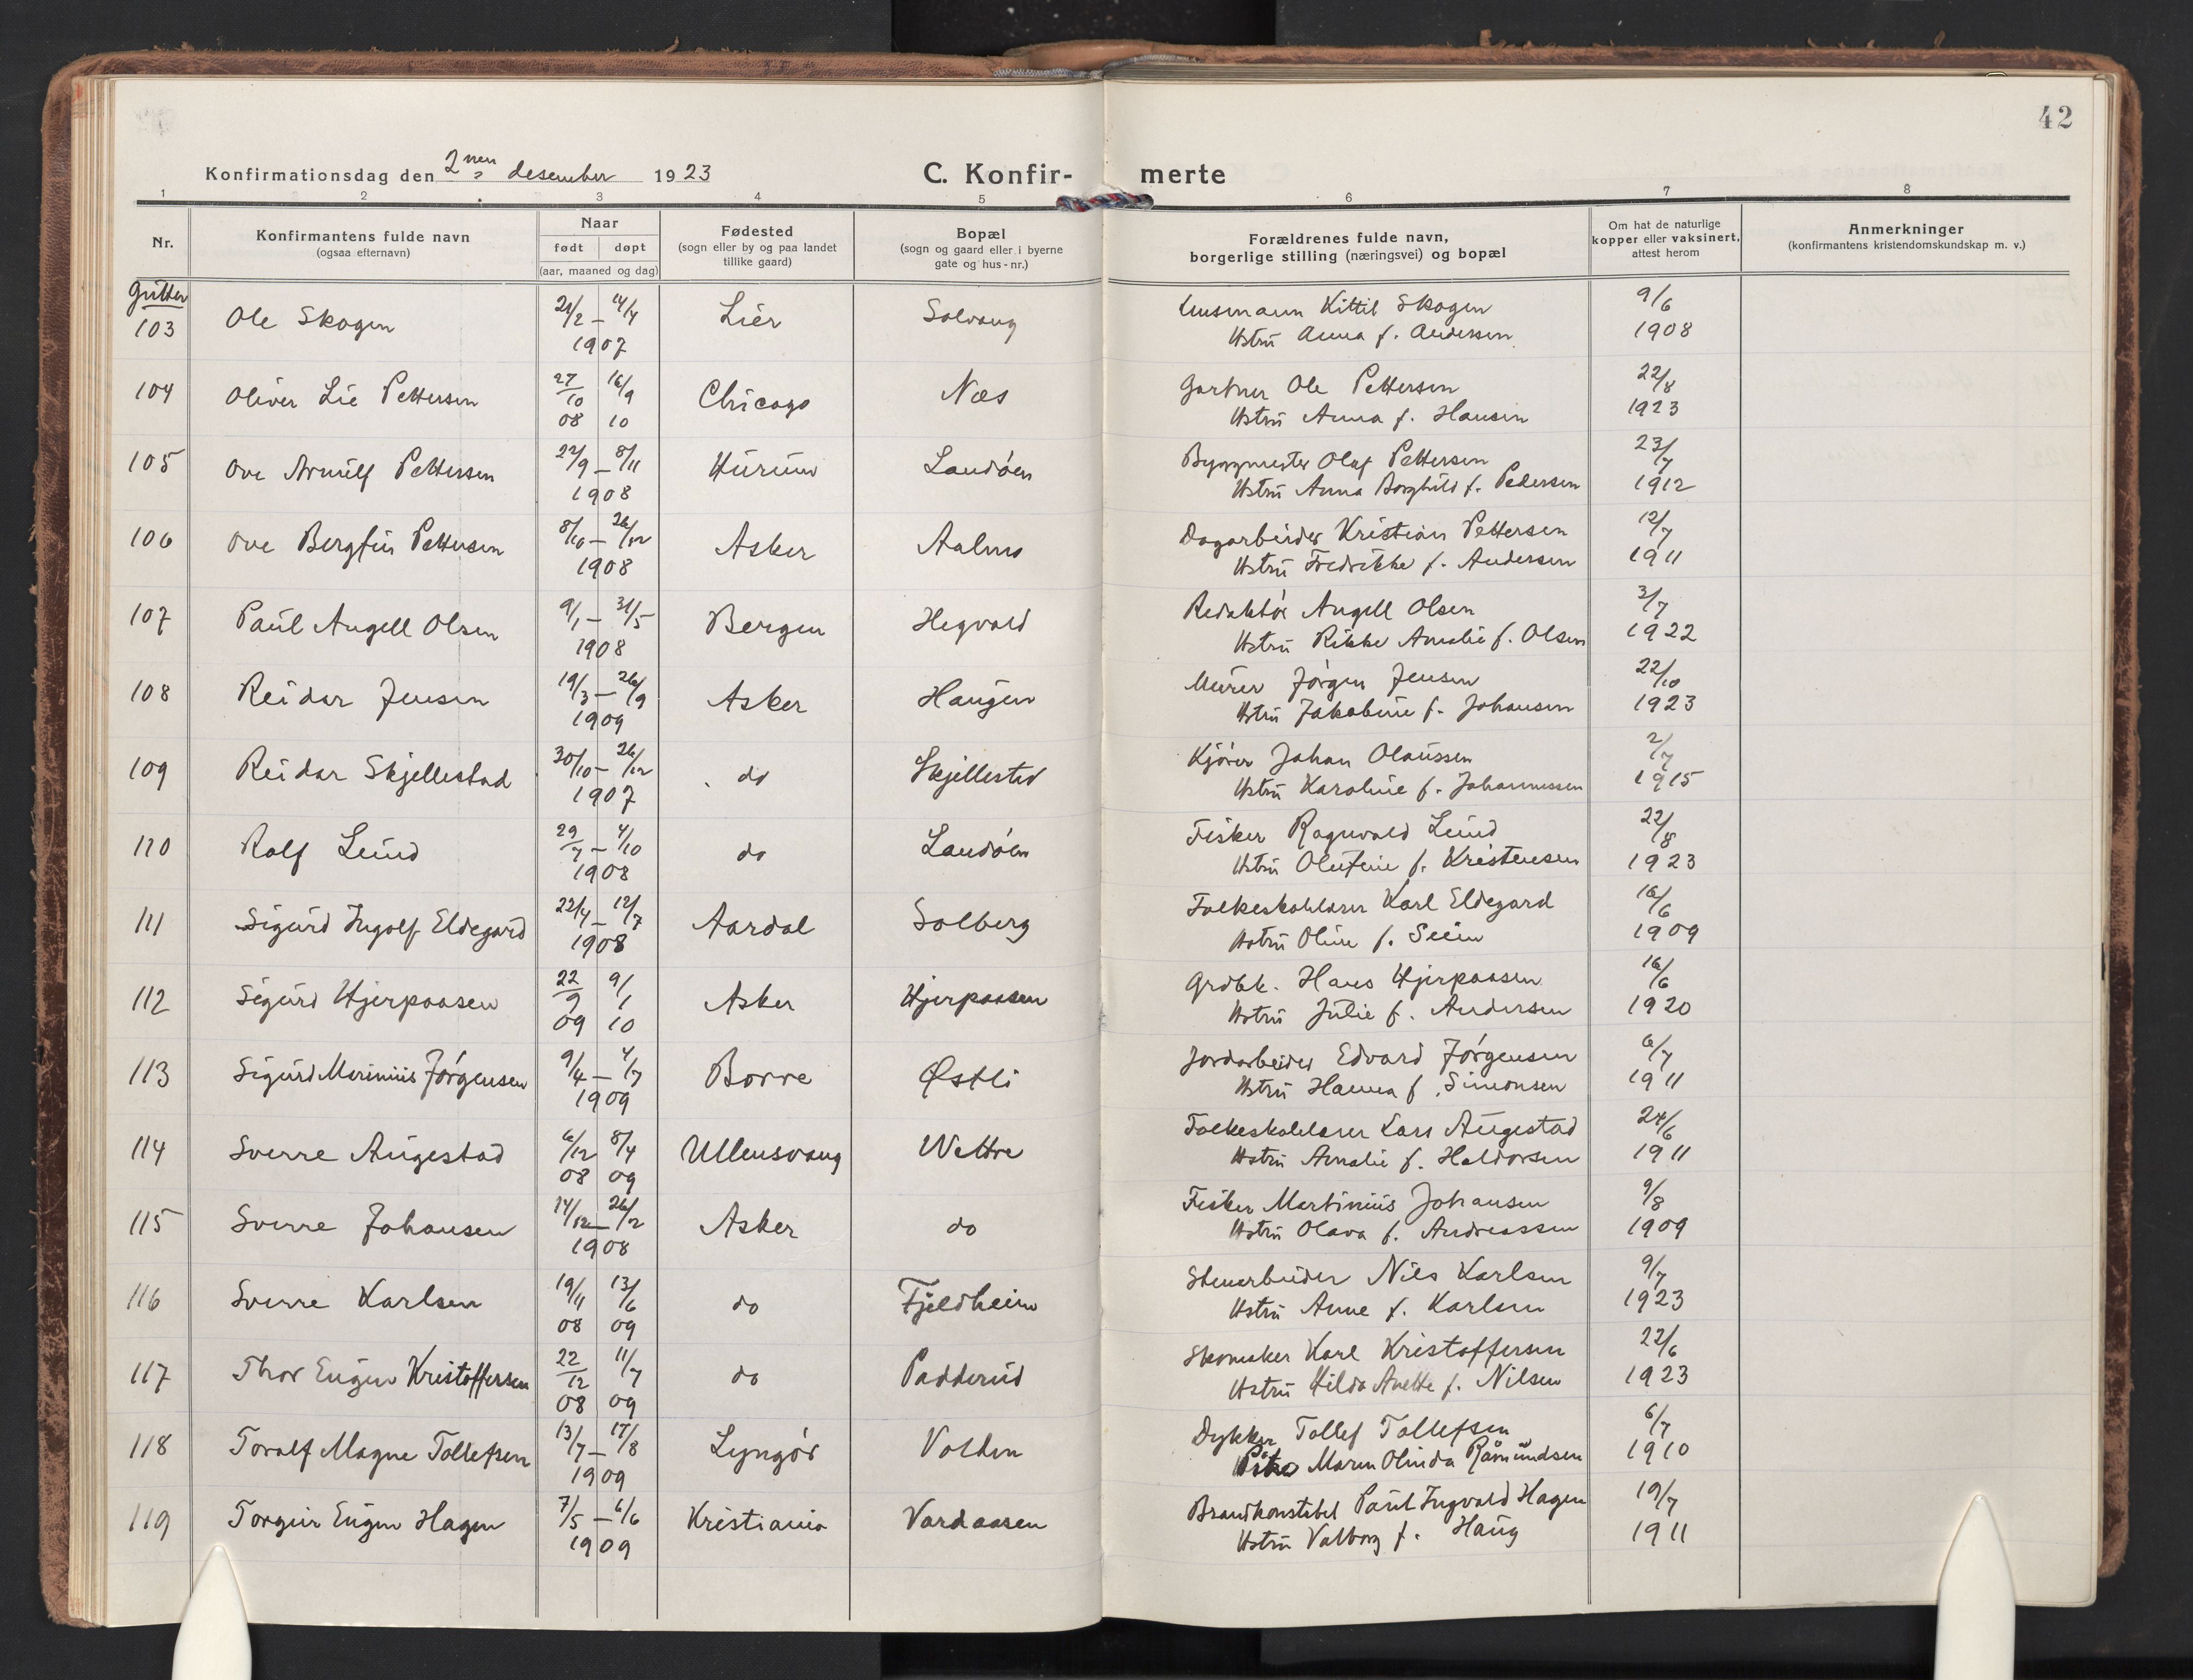 42
Konfirmationsdag den 2nen desember 1923
C. Konfir-merte
1 2 3 4 5 6 7 8
Nr.
Konfirmantens fulde navn
(ogsaa efternavn)
Naar
født døpt
(aar, maaned og dag)
Fødested
(sogn eller by og paa landet
tillike gaard)
Bopæl
(sogn og gaard eller i byerne
gate og hus-nr.)
Forældrenes fulde navn,
borgerlige stilling (næringsvei) og bopæl
Om hat de naturlige
kopper eller vaksinert,
attest herom
Anmerkninger
(konfirmantens kristendomskundskap m. v.)
Gutter
103 Ole Skogen 21/2 – 14/4 Lier Solvang Kittil Skogen 9/6
1907 Hstru Anna f. Andersen 1908
104 Oliver Lie Pettersen 27/10 16/9 Chicago Næs Gartner Ole Pettersen 22/8
08 10 Hstru Anna f. Hansen 1923
105 Ove Arnulf Pettersen 22/9 – 8/11 Hurum Landøen Byggmester Olaf Pettersen 23/7
1908 Hstru Anna Borghild f. Pedersen 1912
106 Ove Bergfin Pettersen 8/10 – 26/12 Asker Aalmo Dagarbeider Kristian Pettersen 12/7
1908 Hstru Fredrikke f. Andersen 1911
107 Paul Angell Olsen 9/1 – 31/5 Bergen Hegvold Redaktør Angell Olsen 3/7
1908 Hstru Rikke Amalie f. Olsen 1922
108 Reidar Jensen 19/3 – 26/9 Asker Haugen Murer Jørgen Jensen 22/10
1909 Hstru Jakobine f. Johansen 1923
109 Reidar Skjellestad 30/10 – 26/12 do Skjellestad Kjører Johan Olaussen 2/7
1907 Hstru Karoline f. Johannessen 1915
110 Rolf Lund 29/7 – 4/10 do Landøen Fisker Ragnvald Lund 22/8
1908 Hstru Olufine f. Kristensen 1923
111 Sigurd Ingolf Eldegard 22/4 – 12/7 Aardal Solberg Folkeskolelærer Karl Eldegard 16/6
1908 Hstru Oline f. Seim 1909
112 Sigurd Hjerpaasen 22/9 9/1 Asker Hjerpaasen Grdbk. Hans Hjerpaasen 16/6
09 10 Hstru Julie f. Andersen 1920
113 Sigurd Marinius Jørgensen 9/4 – 4/7 Borre Østli Jordarbeider Edvard Jørgensen 6/7
1909 Hstru Hanna f. Simonsen 1911
114 Sverre Augestad 6/12 8/4 Ullensvang Wettre Folkeskolelærer Lars Augestad 24/6
08 09 Hstru Amalie f. Haldorsen 1911
115 Sverre Johansen 14/12 – 26/2 Asker do Fisker Martinius Johansen 9/8
1908 Hstru Olava f. Andreassen 1909
116 Sverre Karlsen 19/11 13/6 do Fjeldheim Stenarbeider Nils Karlsen 9/7
08 09 Hstru Anne f. Karlsen 1923
117 Thor Eugen Kristoffersen 22/12 11/7 do Padderud Skomaker Karl Kristoffersen 22/6
08 09 Hstru Hilda Anette f. Nilsen 1923
118 Toralf Magne Tollefsen 13/7 – 17/8 Lyngør Volden Dykker Tollef Tollefsen 6/7
1909 Maren Olinda Råmundsen 1910
119 Torgeir Eugen Hagen 7/5 – 6/6 Kristiania Vardaasen Brandkonstabel Paul Ingvald Hagen 19/7
1909 Hstru Valborg f. Haug 1911